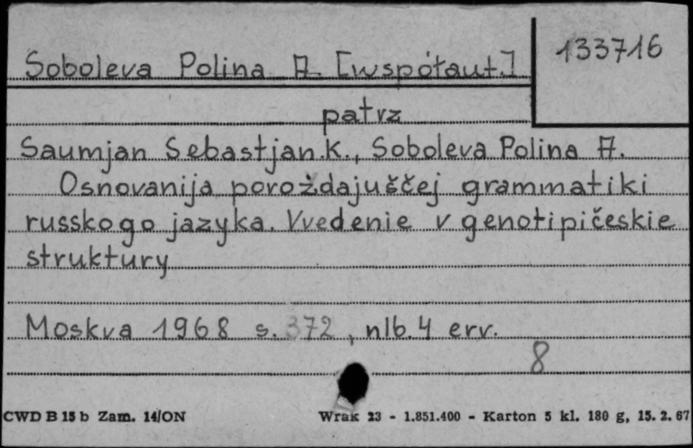 Soboleva Polina A. [współaut.]
133716
patrz
Saumjan Sebastjan.K., Soboleva Polina A.
Osnovanija poroždajuščej grammatiki
russkogo jazyka. Vvedenie v genotipičeskie
struktury
Moskva 1968 s. 372, nlb. 4 err.
8
CWD B 15 b Zam. 14/ON Wrak 23 - 1.851.400 - Karton 5 kl. 180 g, 15. 2. 67